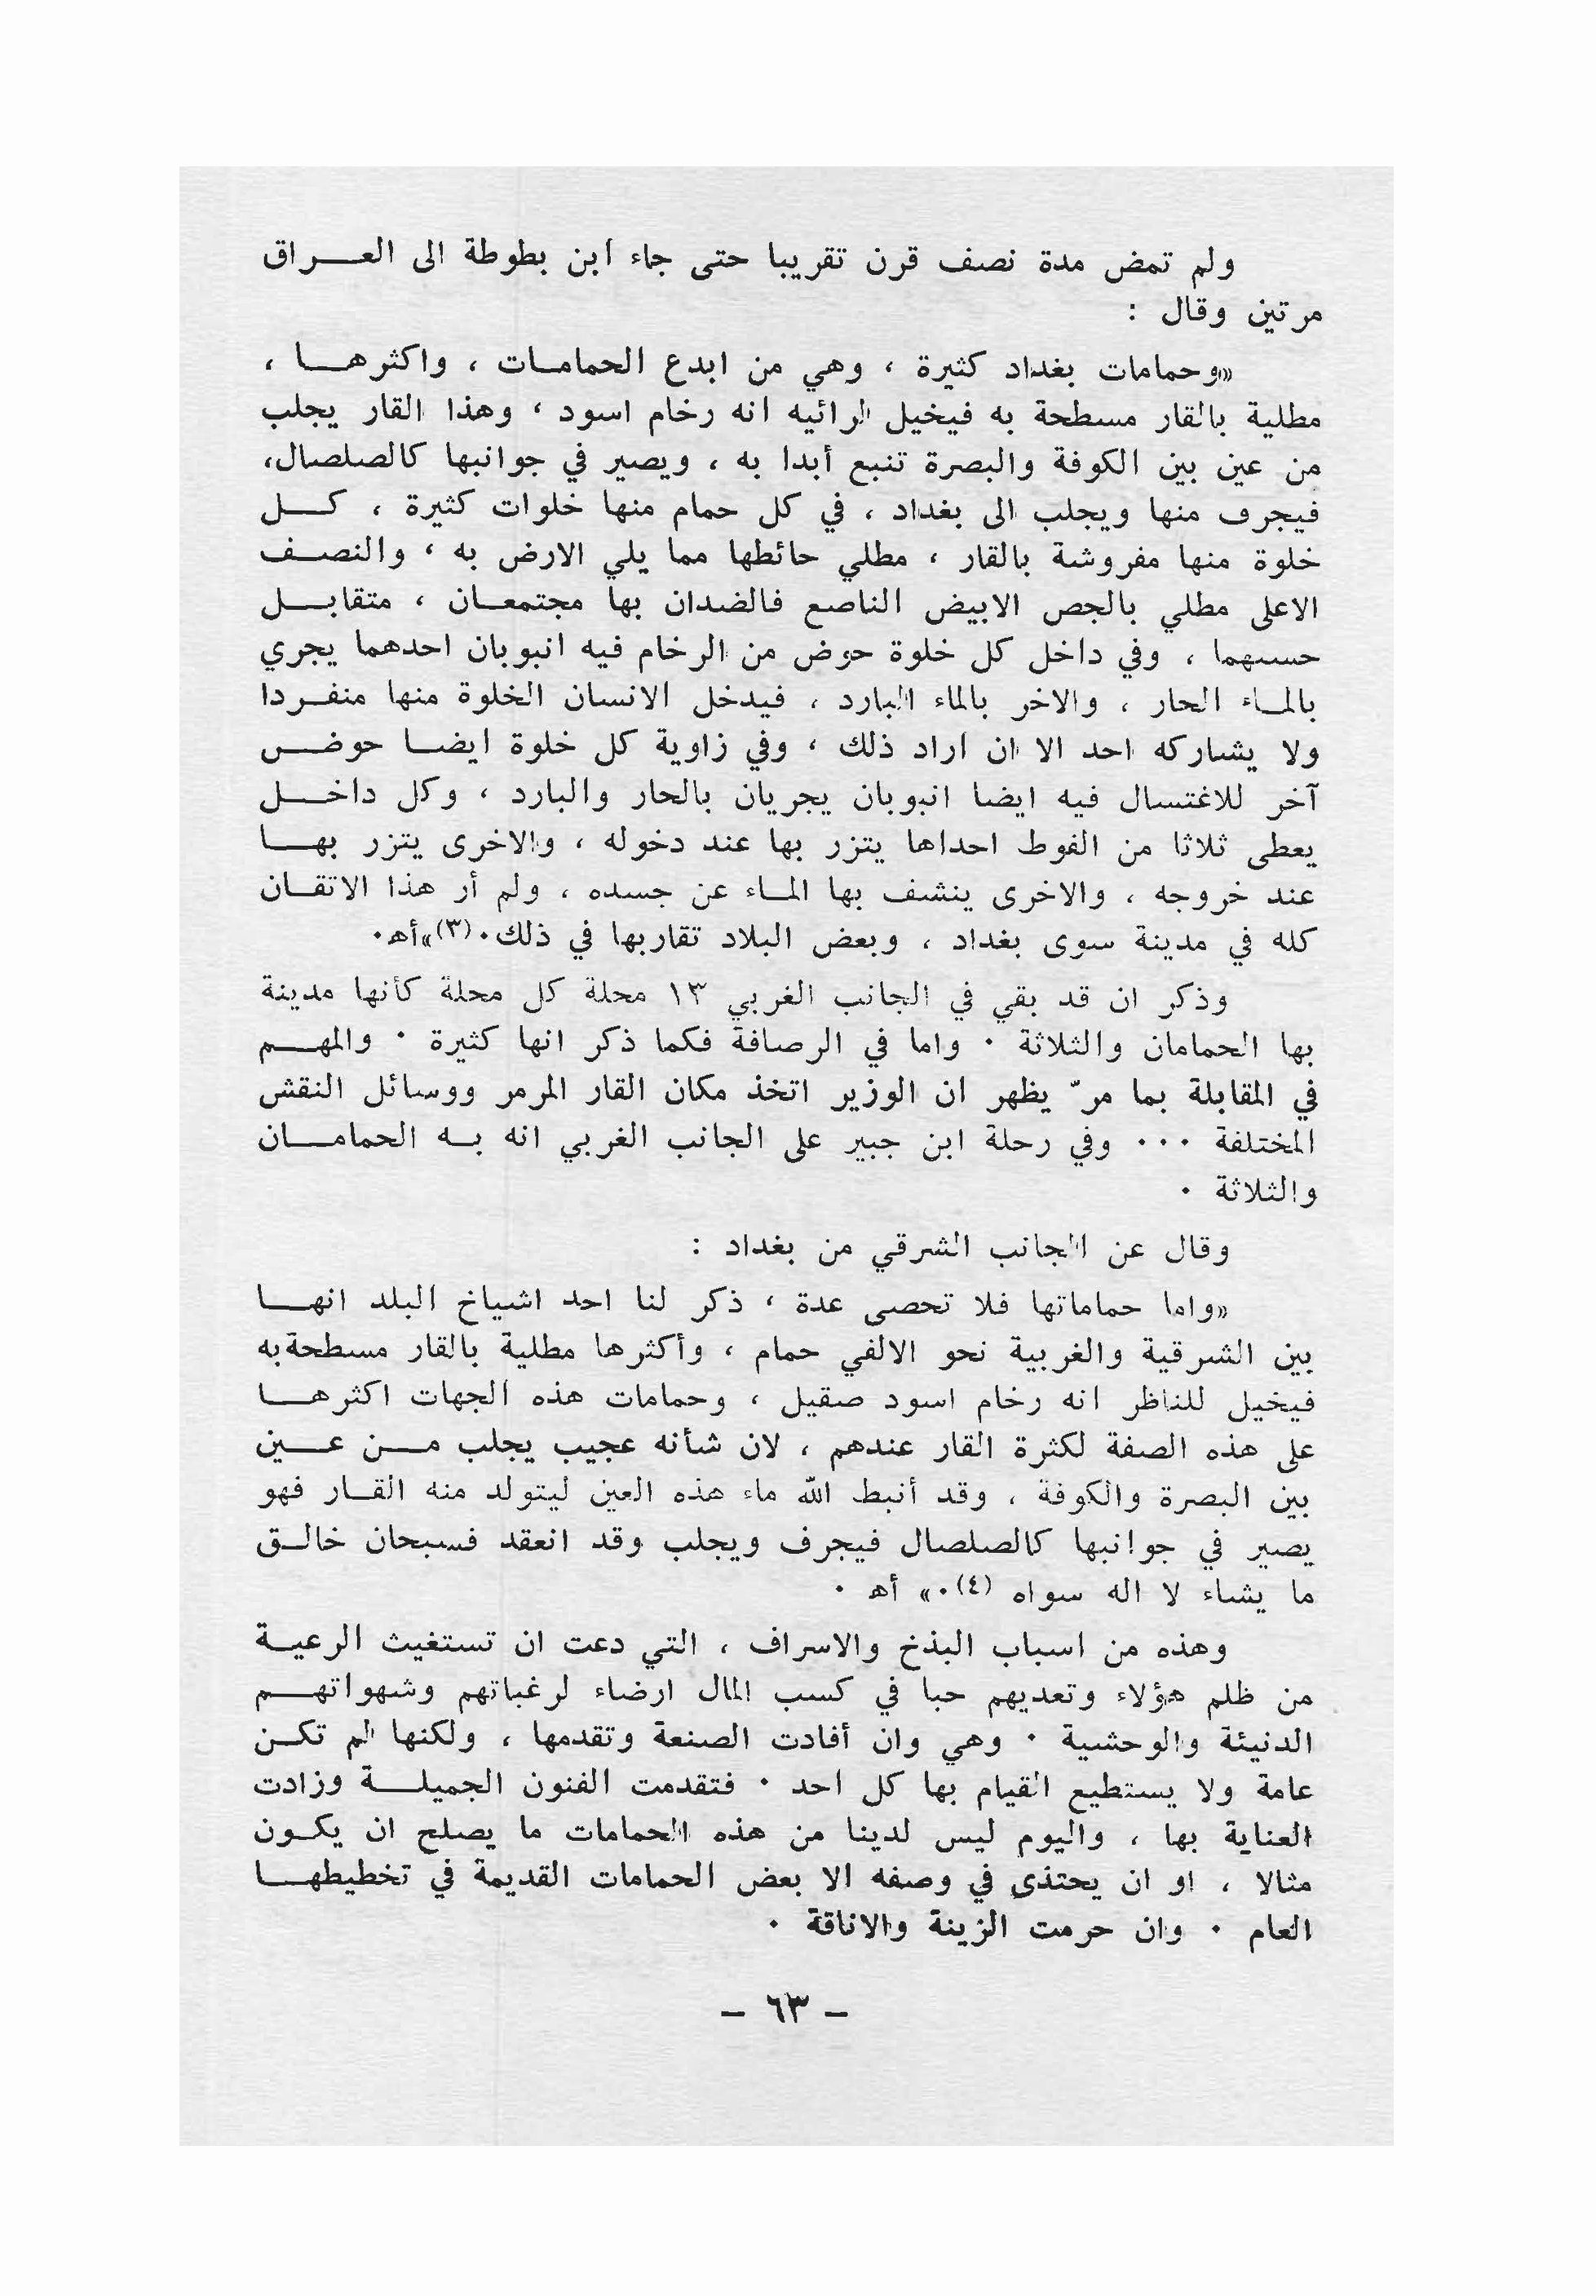 ولم تمض مدة نصف قرن تقريبا حتى جاء ابن بطوطة الى العراق
مرتين وقال :
«وحمامات بغداد كثيرة ، وهي من ابدع الحمامات ، واكثرها ،
مطلية بالقار مسطحة به فيخيل لرائيه انه رخام اسود ، وهذا القار يجلب
من عين بين الكوفة والبصرة تنبع أبدا به ، ويصير في جوانبها كالصلصال،
فيجرف منها ويجلب الى بغداد ، في كل حمام منها خلوات كثيرة ، كل
خلوة منها مفروشة بالقار ، مطلي حائطها مما يلي الارض به ، والنصف
الاعلى مطلي بالجص الابيض الناصع فالضدان بها مجتمعان ، متقابل
حسنهما ، وفي داخل كل خلوة حوض من الرخام فيه انبوبان احدهما يجري
بالماء الحار ، والاخر بالماء البارد ، فيدخل الانسان الخلوة منها منفردا
ولا يشاركه احد الا ان اراد ذلك ، وفي زاوية كل خلوة ايضا حوض
آخر للاغتسال فيه ايضا انبوبان يجريان بالحار والبارد ، وكل داخل
يعطى ثلاثا من الفوط احداها يتزر بها عند دخوله ، والاخرى يتزر بها
عند خروجه ، والاخرى ينشف بها الماء عن جسده ، ولم أر هذا الاتقان
كله في مدينة سوى بغداد ، وبعض البلاد تقاربها في ذلك٠(٣)»أهـ٠
وذكر ان قد بقي في الجانب الغربي ١٣ محلة كل محلة كأنها مدينة
بها الحمامان والثلاثة ٠ واما في الرصافة فكما ذكر انها كثيرة ٠ والمهم
في المقابلة بما مرّ يظهر ان الوزير اتخذ مكان القار المرمر ووسائل النقش
المختلفة ٠٠٠ وفي رحلة ابن جبير على الجانب الغربي انه به الحمامان
والثلاثة ٠
وقال عن الجانب الشرقي من بغداد :
«واما حماماتها فلا تحصى عدة ، ذكر لنا احد اشياخ البلد انها
بين الشرقية والغربية نحو الالفي حمام ، وأكثرها مطلية بالقار مسطحةبه
فيخيل للناظر انه رخام اسود صقيل ، وحمامات هذه الجهات اكثرها
على هذه الصفة لكثرة القار عندهم ، لان شأنه عجيب يجلب من عين
بين البصرة والكوفة ، وقد أنبط الله ماء هذه العين ليتولد منه القار فهو
يصير في جوانبها كالصلصال فيجرف ويجلب وقد انعقد فسبحان خالق
ما يشاء لا اله سواه (٤)٠» أهـ ٠
وهذه من اسباب البذخ والاسراف ، التي دعت ان تستغيث الرعية
من ظلم هؤلاء وتعديهم حبا في كسب المال ارضاء لرغباتهم وشهواتهم
الدنيئة والوحشية ٠ وهي وان أفادت الصنعة وتقدمها ، ولكنها لم تكن
عامة ولا يستطيع القيام بها كل احد ٠ فتقدمت الفنون الجميلة وزادت
العناية بها ، واليوم ليس لدينا من هذه الحمامات ما يصلح ان يكون
مثالا ، او ان يحتذى في وصفه الا بعض الحمامات القديمة في تخطيطها
العام ٠ وان حرمت الزينة والاناقة ٠
– ٦٣ –